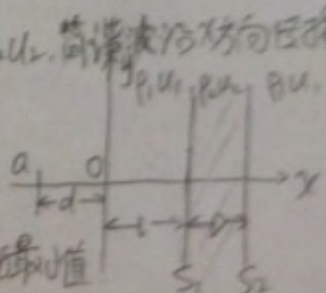 u₂. 简谐波沿x方向
y
ρ₁u₁ ρ₂u₂ ρ₁u₁
a O x
d L D
最小值
S₁ S₂